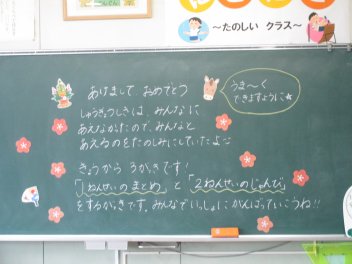 ～たのしい クラス～
あけまして おめでとう
うま～く
できますように★
しゅうぎょうしきは、みんなに
あえなかったので、みんなと
あえるのをたのしみにしていたよ
きょうから 3がっきです!
「1ねんせいのまとめ」と「2ねんせいのじゅんび」
をする がっきです。みんなでいっしょにがんばっていこうね!!